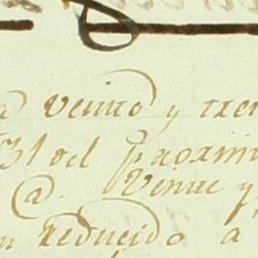 veinte y tren
31 del proximi
@. Veinte y
reducido a